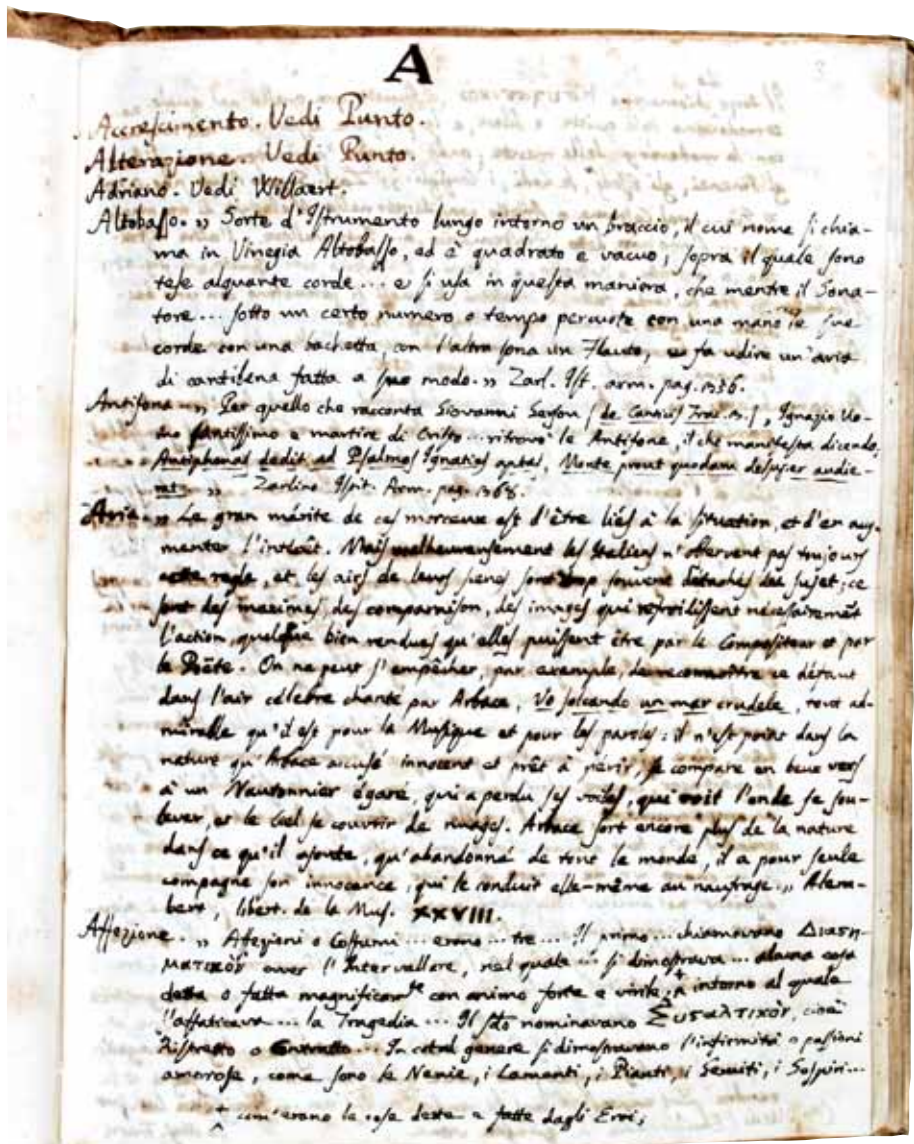 A
3
Accrescimento. Vedi Punto.
Alterazione. Vedi Punto.
Adriano. Vedi Willaert.
Altobasso. „ Sorte d'Istrumento lungo intorno un braccio, il cui nome si chia-
ma in Vinegia Altobasso, ed è quadrato e vacuo, sopra il quale sono
tese alquante corde ... e si usa in questa maniera, che mentre il Sona-
tore ... sotto un certo numero o tempo percuote con una mano le sue
corde con una bachetta, con l'altra sona un Flauto, e fa udire un'aria
di cantilena fatta a suo modo. „ Zarl. Ist. arm. pag. 1336.
Antifona „ Per quello che racconta Giovanni Gerson , Ignazio Uo-
mo santissimo e martire di Cristo ... ritrovò le Antifone, il che manifesta dicendo,
Antiphonas dedit ad Psalmos Ignatius aptas, Monte prout quodam audie-
rat. „ Zarlino Istit. Arm. pag. 1368.
Aria. „ Le gran mérite de ces morceaux est d'être liés à la situation, et d'en aug-
menter l'intérêt. Mais malheureusement les Italiens n'observent pas toujours
cette regle, et les airs de leurs scenes sont trop souvent détachés du sujet; ce
sont des maximes, des comparaison, des images qui refroidissent nécessairemēt
l'action, quelque bien rendues qu'elles puissent être par le Compositeur et par
le Poëte. On ne peut s'empêcher, par exemple, de reconnoître ce défaut
dans l'air célebre chanté par Arbace, Vo solcando un mar crudele, tout ad-
mirable qu'il est pour la Musique et pour les paroles: il n'est point dans la
nature qu'Arbace accusé innocent et prêt à périr, se compare en beux vers
à un Nautonnier égaré, qui a perdu ses voiles, qui voit l'onde se sou-
lever, et le Ciel se couvrir de nuages. Arbace sort encore plus de la nature
dans ce qu'il ajoute, qu'abandonné de tout le monde, il a pour seule
compagne son innocence, qui le conduit elle-même au naufrage. „ Alem-
bert, libert. de la Mus. XXVIII.
Affezione. „ Afezioni o Costumi ... erano ... tre ... Il primo ... chiamavano Διαστη-
ματικὸν over l'Intervallare, nel quale ... si dimostrava ... alcuna cosa
detta o fatta magnificamte con animo forte e virile, + intorno al quale
s'affaticava ... la Tragedia ... Il sdo nominavano Συσταλτικὸν, cioè
Ristretto o Contratto ... In cotal genere si dimostravano l'infermità o passioni
amorose, come sono le Nenie, i Lamenti, i Pianti, i Gemiti, i Sospiri ...
+ com'erano le cose dette e fatte dagli Eroi;